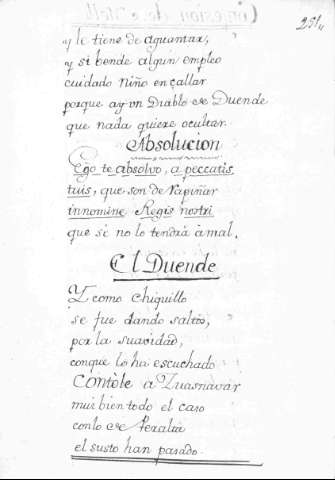 251,,
y le tiene de aguantar,
y si bende algun empleo
cuidado niño en callar
porque ay un Diablo de Duende
que nada quiere ocultar.
Absolucion
Ego te absolvo, a peccatis
tuis, que son de rapiñar
innomine Regis nostri
que si no lo tendrá àmal.
El Duende
Y como chiquillo
se fue dando saltos,
por la suavidad,
conque lo ha escuchado
Contòle a Zuasnavar
mui bien todo el caso
conlo de Peralta
el susto han pasado